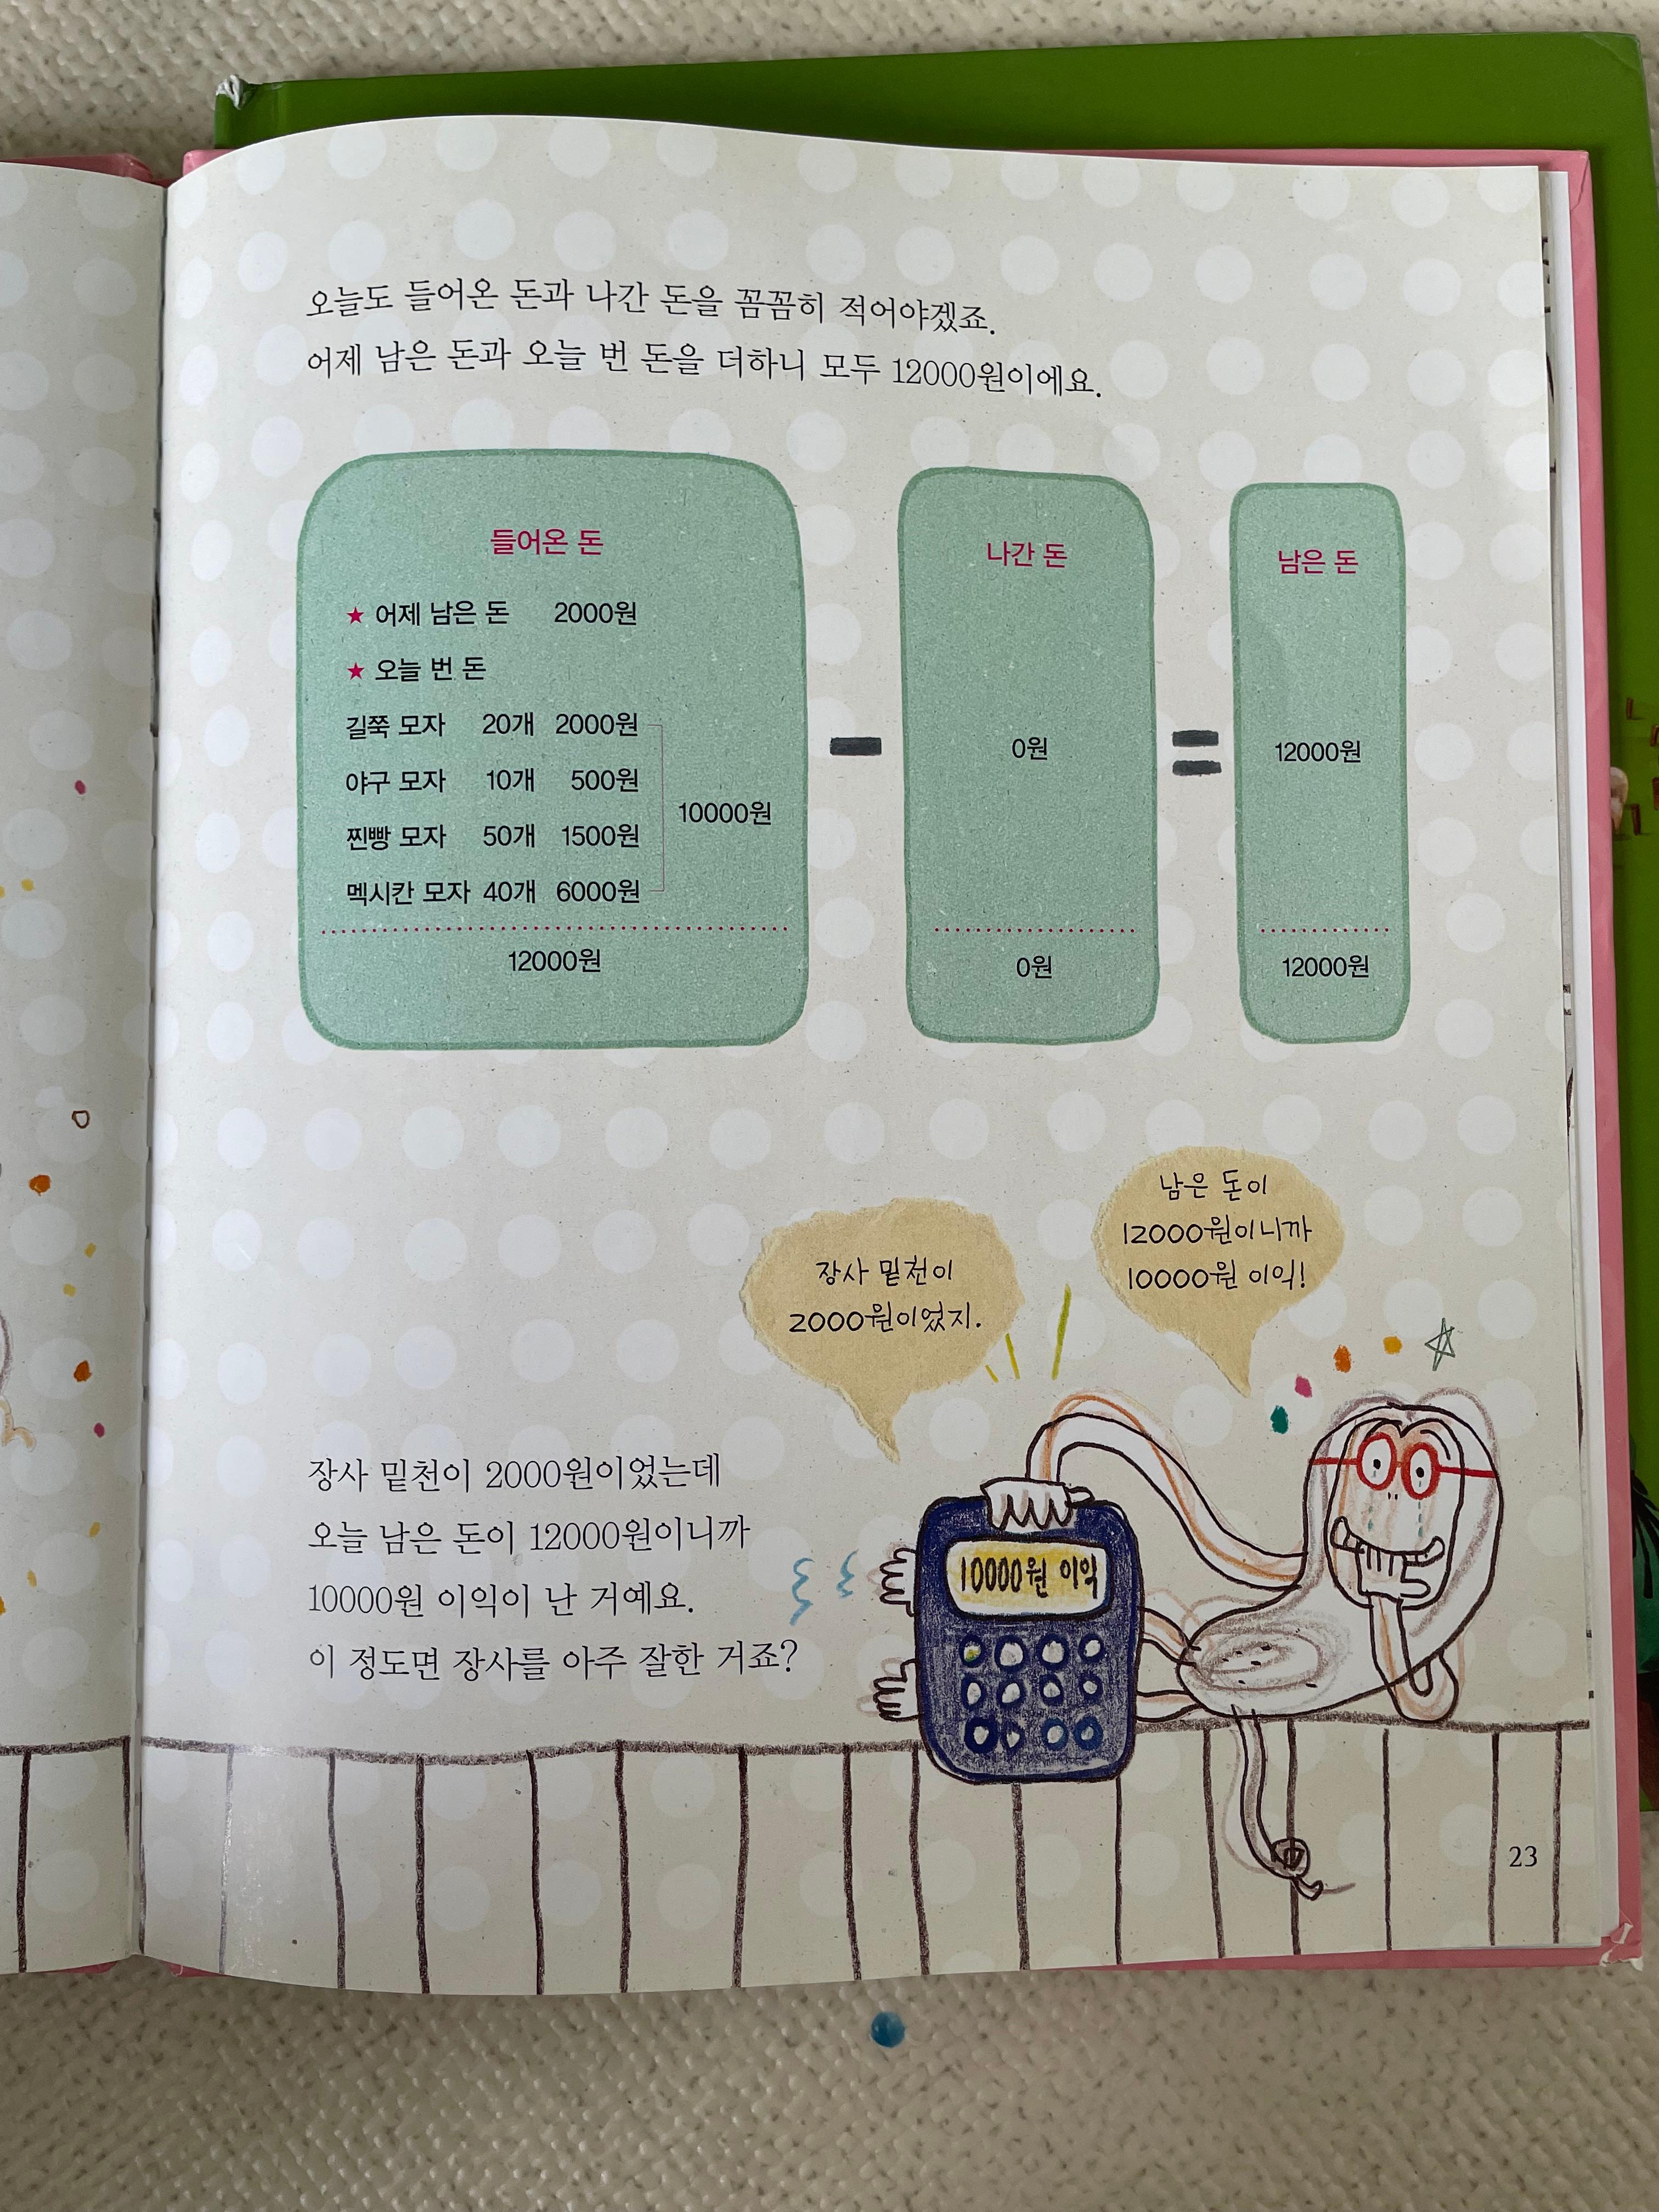 오늘도 들어온 돈과 나간 돈을 꼼꼼히 적어야겠죠.
어제 남은 돈과 오늘 번 돈을 더하니 모두 12000원이에요.
들어온 돈
★ 어제 남은 돈 2000원
★ 오늘 번 돈
길쭉 모자 20개 2000원
야구 모자 10개 500원
찐빵 모자 50개 1500원
멕시칸 모자 40개 6000원
10000원
12000원
−
나간 돈
0원
0원
=
남은 돈
12000원
12000원
장사 밑천이
2000원이었지.
남은 돈이
12000원이니까
10000원 이익!
장사 밑천이 2000원이었는데
오늘 남은 돈이 12000원이니까
10000원 이익이 난 거예요.
이 정도면 장사를 아주 잘한 거죠?
10000원 이익
23